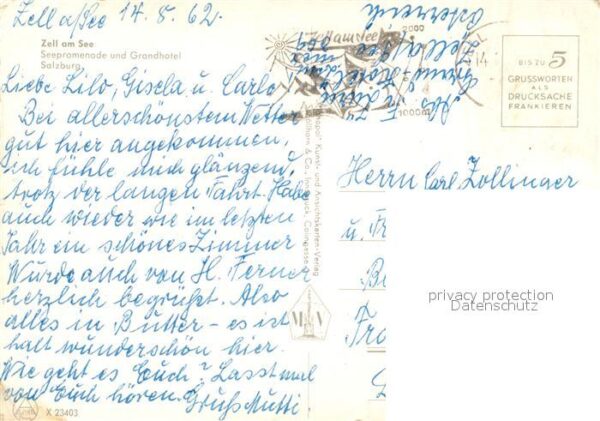 Zell a/See 14. 5. 62.
Zell am See
Seepromenade und Grandhotel
Salzburg
Liebe Lilo, Gisela u. Carlo
Bei allerschönstem Wetter
gut hier angekommen,
ich fühle mich glänzend,
trotz der langen Fahrt. Habe
auch wieder wie im letzten
Jahr ein schönes Zimmer
Wurde auch von H. Ferner
herzlich begrüßt. Also
alles in Butter - es ist
halt wunderschön hier.
Wie geht es Euch? Lasst mal
von Euch hören. Gruß Mutti.
X 23403
Zell am See
2000
1000
Abs.
Zell a/See
Österreich
Kunst- und Ansichtskarten-Verlag
& Co., Innsbruck,
BIS ZU 5
GRUSSWORTEN
ALS
DRUCKSACHE
FRANKIEREN
Herrn Carl Zollinger
u. Fr
privacy protection
Datenschutz